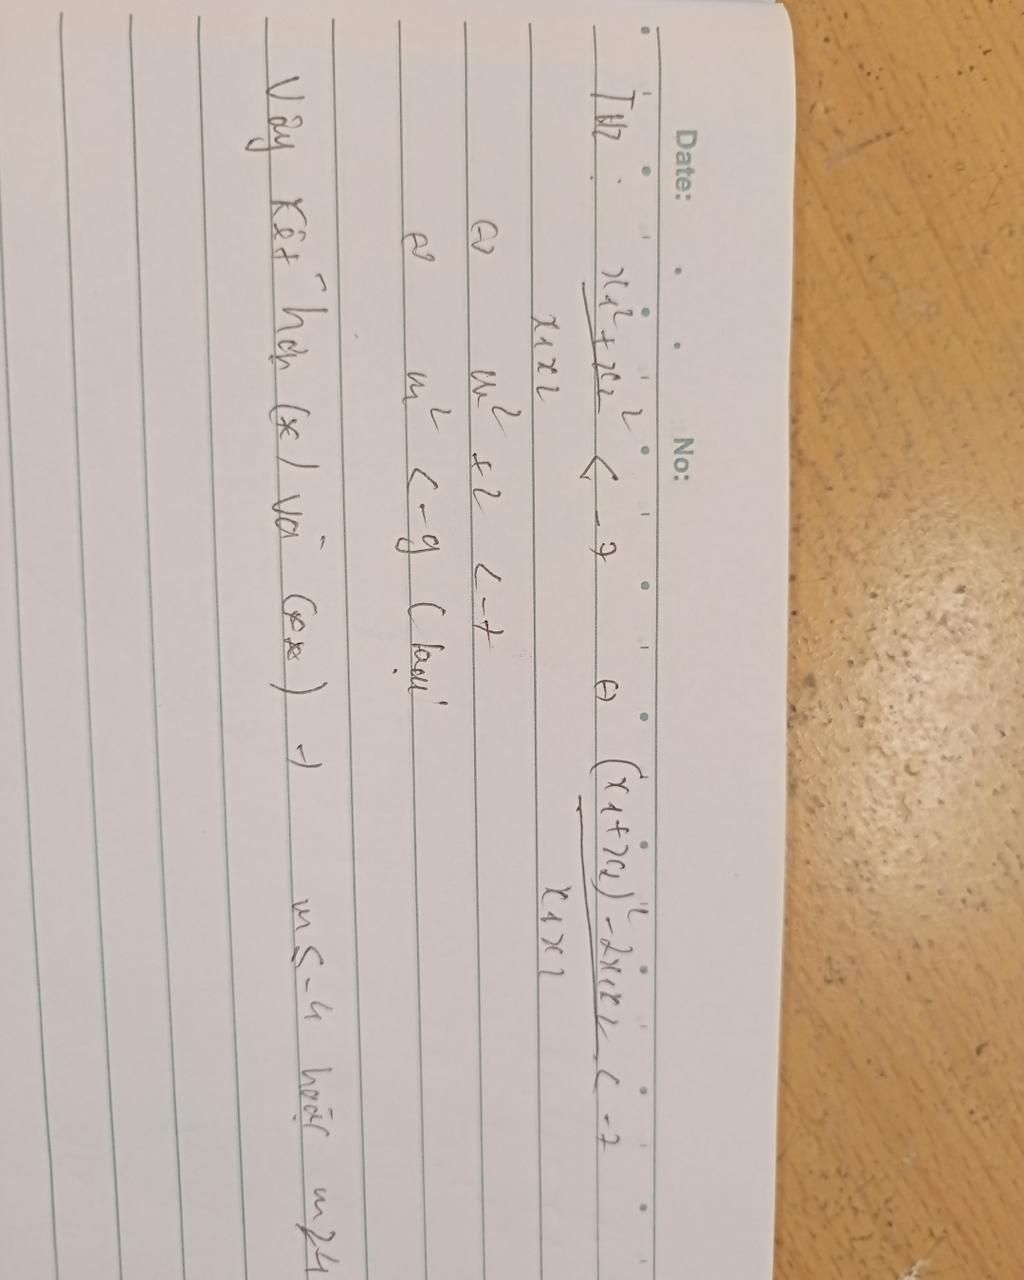 Date: No:
TH2: x1² + x2² / x1x2 < -7 ⇔ (x1+x2)² - 2x1x2 / x1x2 < -7
⇔ m² + 2 < -7
⇔ m² < -9 (loại)
Vậy kết hợp (*) và (**) → m ≤ -4 hoặc m ≥ 4